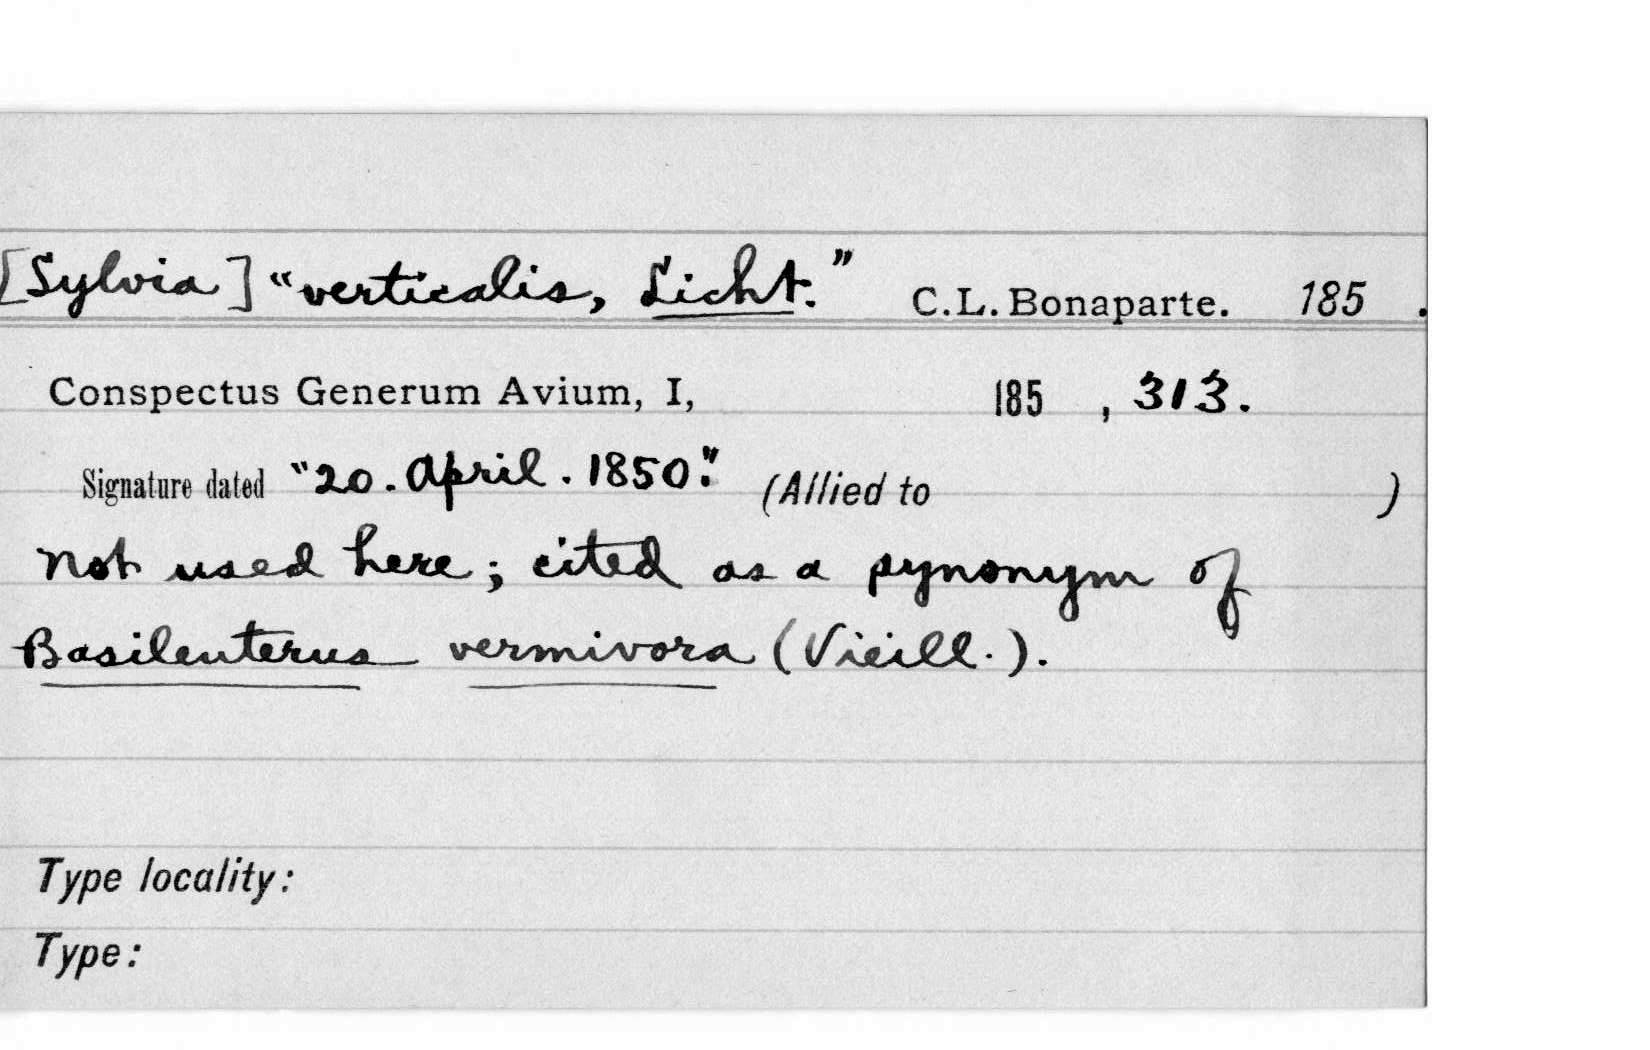 [Sylvia] "verticalis, Licht." C.L. Bonaparte. 185 .
Conspectus Generum Avium, I, 185 , 313.
Signature dated "20. April. 1850." (Allied to )
Not used here; cited as a synonym of
Basileuterus vermivora (Vieill.).
Type locality:
Type: